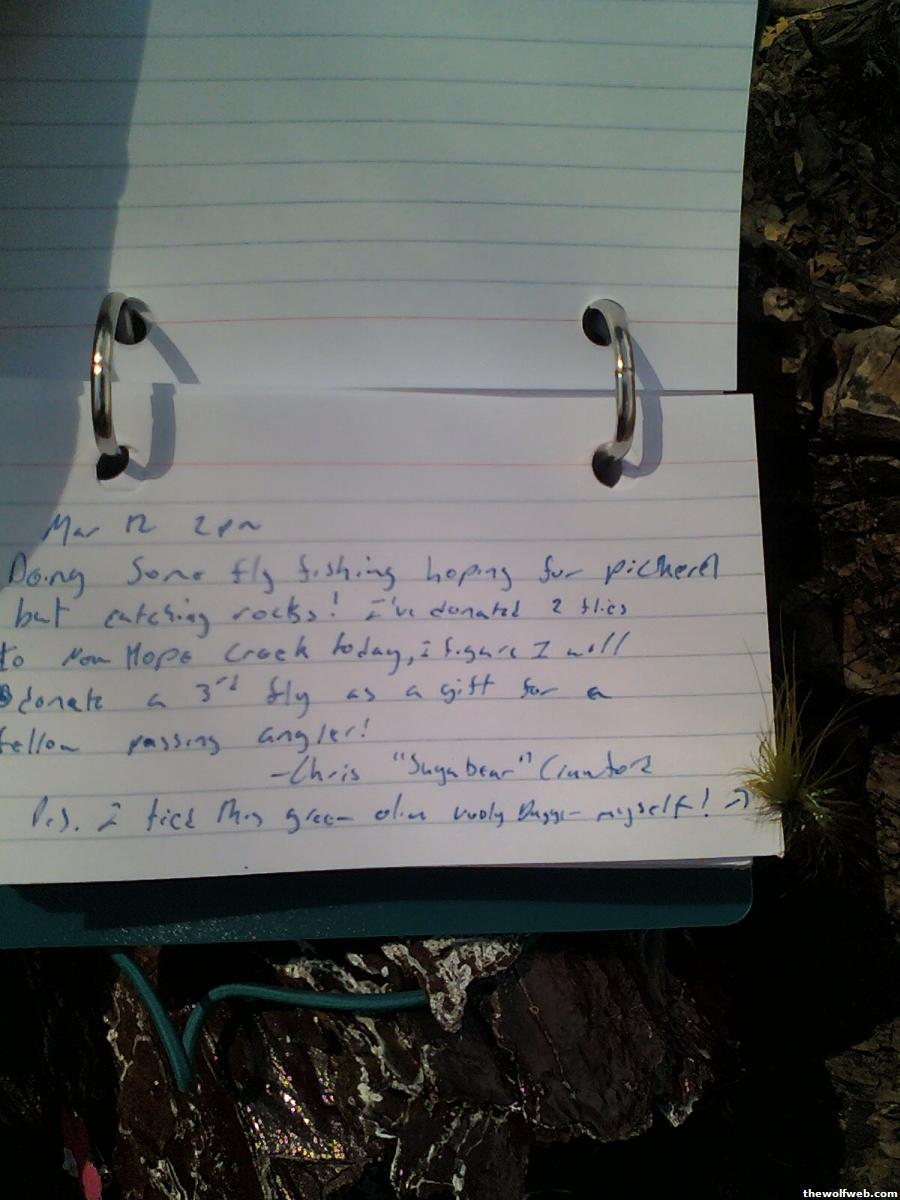 Mar 12 2pm
Doing some fly fishing hoping for pickerel
but catching rocks! I've donated 2 flies
to New Hope Creek today, I figure I will
donate a 3rd fly as a gift for a
fellow passing angler!
-Chris "Sugabear"
P.S. I tied this green olive wooly bugger myself! →
thewolfweb.com